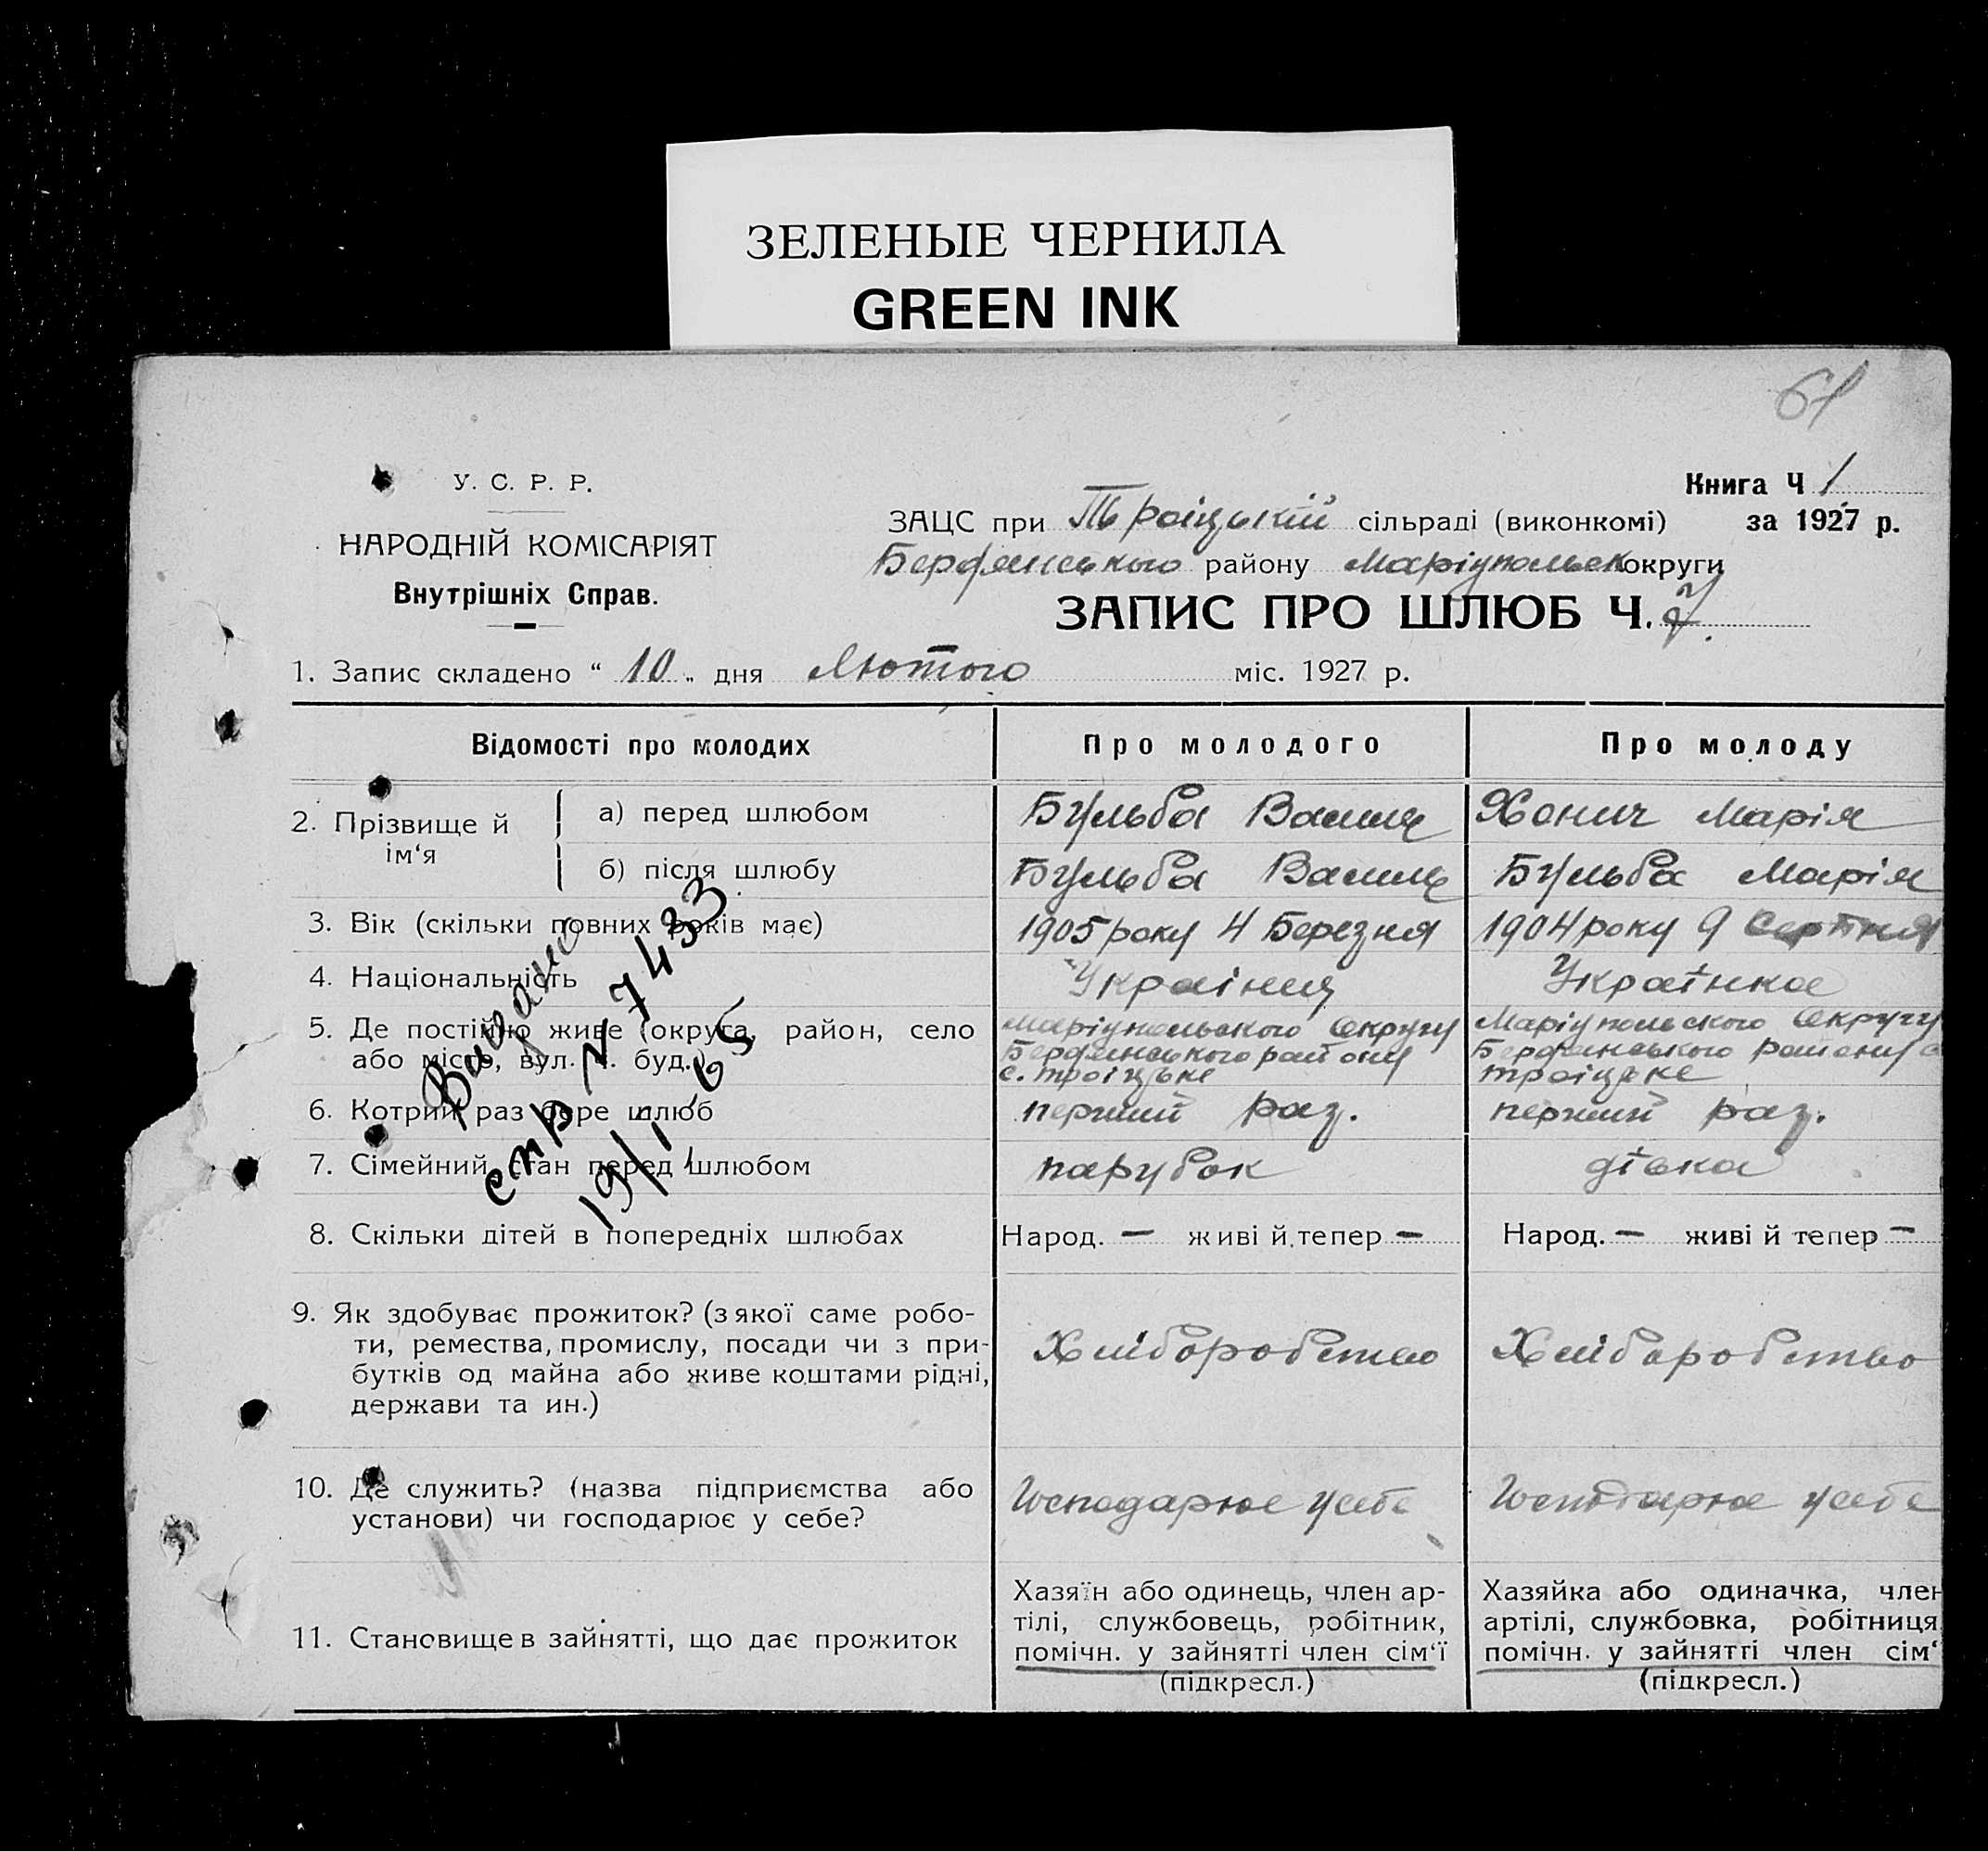 ЗЕЛЕНЫЕ ЧЕРНИЛА
GREEN INK
61
У. С. Р. Р.
НАРОДНІЙ КОМІСАРІЯТ
Внутрішніх Справ.
Книга Ч 1
за 1927 р.
ЗАЦС при Троіцькій сільраді (виконкомі)
Бердянського району Маріупольськ округи
ЗАПИС ПРО ШЛЮБ Ч.
1. Запис складено “ 10 „ дня Лютого міс. 1927 р.
Відомості про молодих Про молодого Про молоду
2. Прізвище й ім‘я
а) перед шлюбом Бульба Василь Хонич Марія
б) після шлюбу Бульба Василь Бульба Марія
3. Вік (скільки повних років має) 1905 року 4 Березня 1904 року 9 Серпня
4. Національність Украінець Украінка
5. Де постійно живе (округа, район, село
або місто, вул. ч. буд.)
Маріупольського Округу
Бердянського району
с. Троіцьке
Маріупольского Округу
Бердянського району с
Троіцьке
6. Котрий раз бере шлюб перший раз. перший раз.
7. Сімейний стан перед шлюбом парубок дівка
8. Скільки дітей в попередніх шлюбах Народ. — живі й тепер — Народ. — живі й тепер —
9. Як здобуває прожиток? (з якої саме робо-
ти, ремества, промислу, посади чи з при-
бутків од майна або живе коштами рідні,
держави та ин.)
Хліборобство Хліборобство
10. Де служить? (назва підприємства або
установи) чи господарює у себе?
Господарює у себе Господарює у себе
11. Становище в зайнятті, що дає прожиток
Хазяїн або одинець, член ар-
тілі, службовець, робітник,
помічн. у зайнятті член сім‘ї
(підкресл.)
Хазяйка або одиначка, член
артілі, службовка, робітниця
помічн. у зайнятті член сім‘
(підкресл.)
Видано
спр N 7433
19/1 65